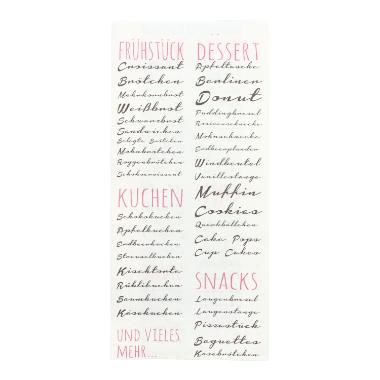 FRÜHSTÜCK
Croissant
Brötchen
Mehrkornbrot
Weißbrot
Schwarzbrot
Sandwiches
Belegte Brötchen
Mohnbrötchen
Roggenbrötchen
KUCHEN
Schokokuchen
Apfelkuchen
Erdbeerkuchen
Streuselkuchen
Kirschtorte
Rüblikuchen
Baumkuchen
Käsekuchen
UND VIELES
MEHR...
DESSERT
Apfeltasche
Berliner
Donut
Puddingbrezel
Rosinenschnecke
Mohnschnecke
Erdbeerplunder
Windbeutel
Vanillestange
Muffin
Cookies
Quarkbällchen
Cake Pops
Cup Cakes
SNACKS
Laugenbrezel
Laugenstange
Pizzastück
Baguettes
Käsebrötchen